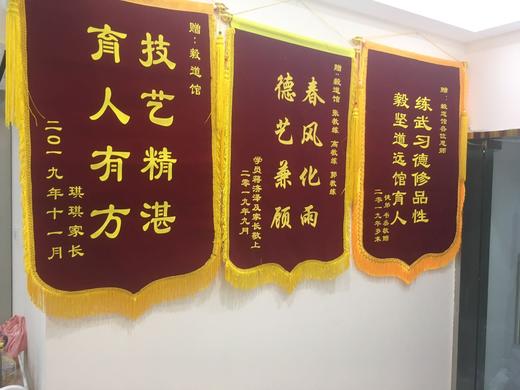 赠：毅道馆
技艺精湛
育人有方
琪琪家长
二〇一九年十一月
赠：毅道馆 张教练 高教练 郭教练
春风化雨
德艺兼顾
学员蒋济泽及家长敬上
二零一九年九月
赠：毅道馆各位恩师
练武习德修品性
毅坚道远馆育人
二零一九年